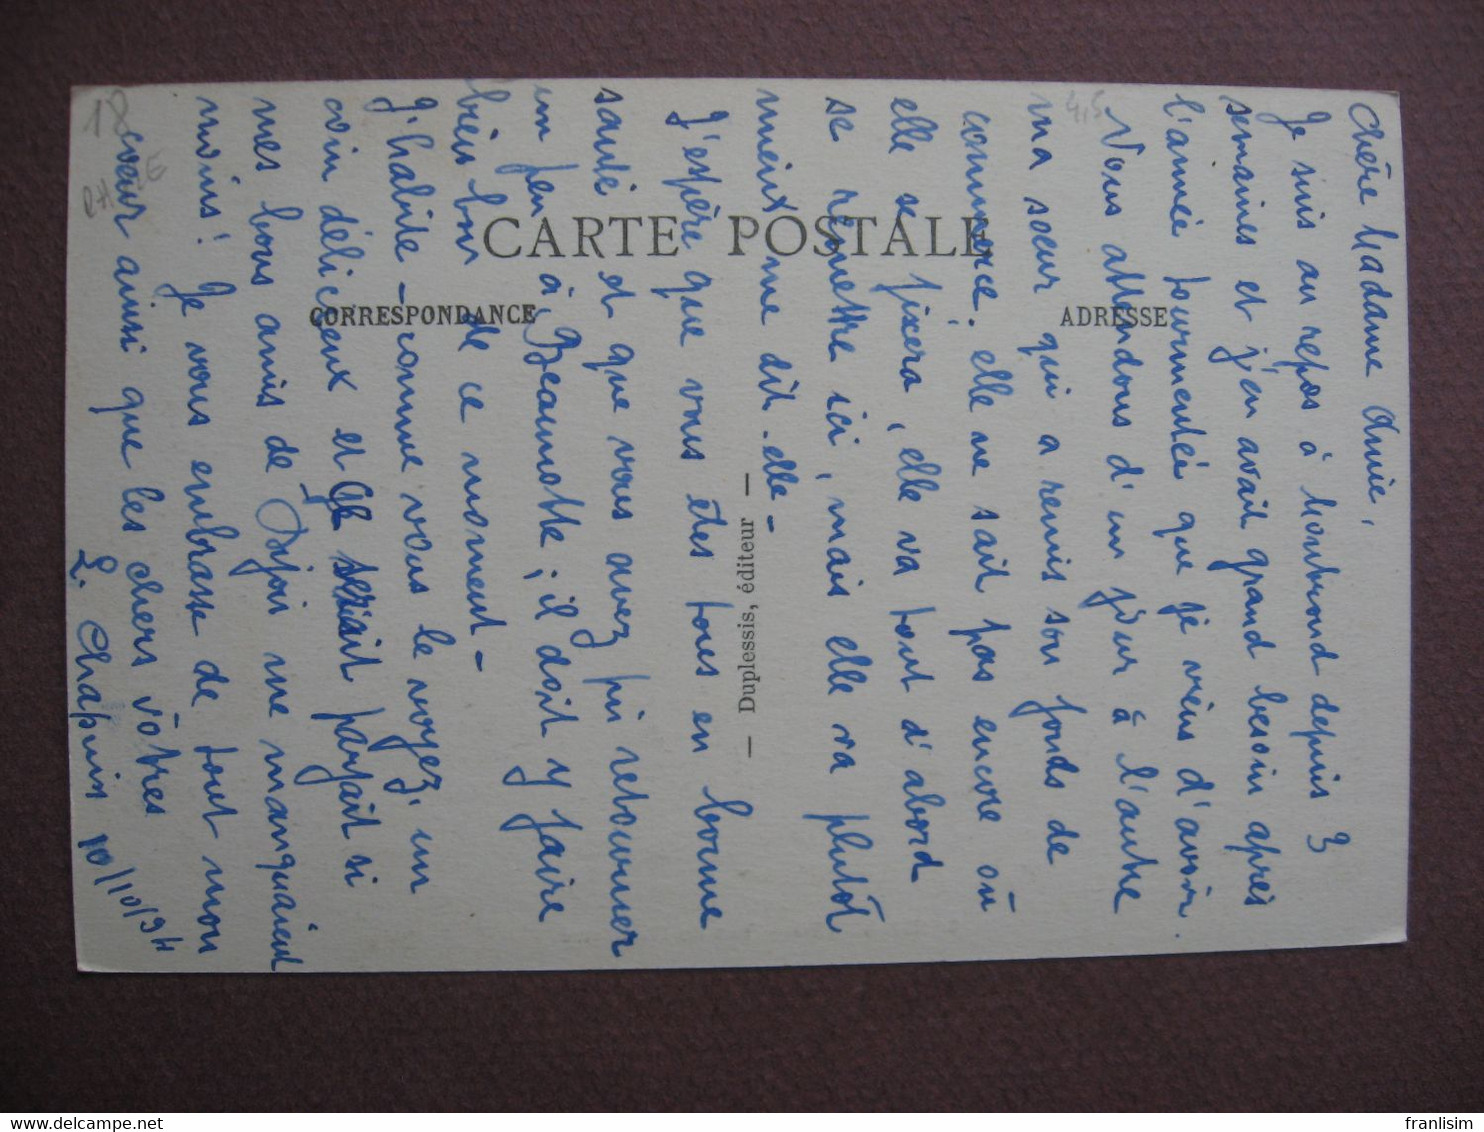 Chère Madame Annie,
Je suis au repos à Montrond depuis 3
semaines et j'en avait grand besoin après
l'année tourmentée que je viens d'avoir.
Nous attendons d'un jour à l'autre
ma soeur qui a remis son fonds de
commerce. elle ne sait pas encore où
elle se fixera, elle va tout d'abord
se remettre ici, mais elle va plutôt
mieux me dit-elle -
J'espère que vous êtes tous en bonne
santé et que vous avez pu retourner
un peu à Beaumotte, il doit y faire
bien bon de ce moment -
J'habite - comme vous le voyez, un
coin délicieux et serait parfait si
mes bons amis de Dijon me manquaient
moins! Je vous embrasse de tout mon
coeur ainsi que les chers vôtres
L. Chapuis 10/10/34
CARTE POSTALE
CORRESPONDANCE
ADRESSE
— Duplessis, éditeur —
18
4,5
franlisim